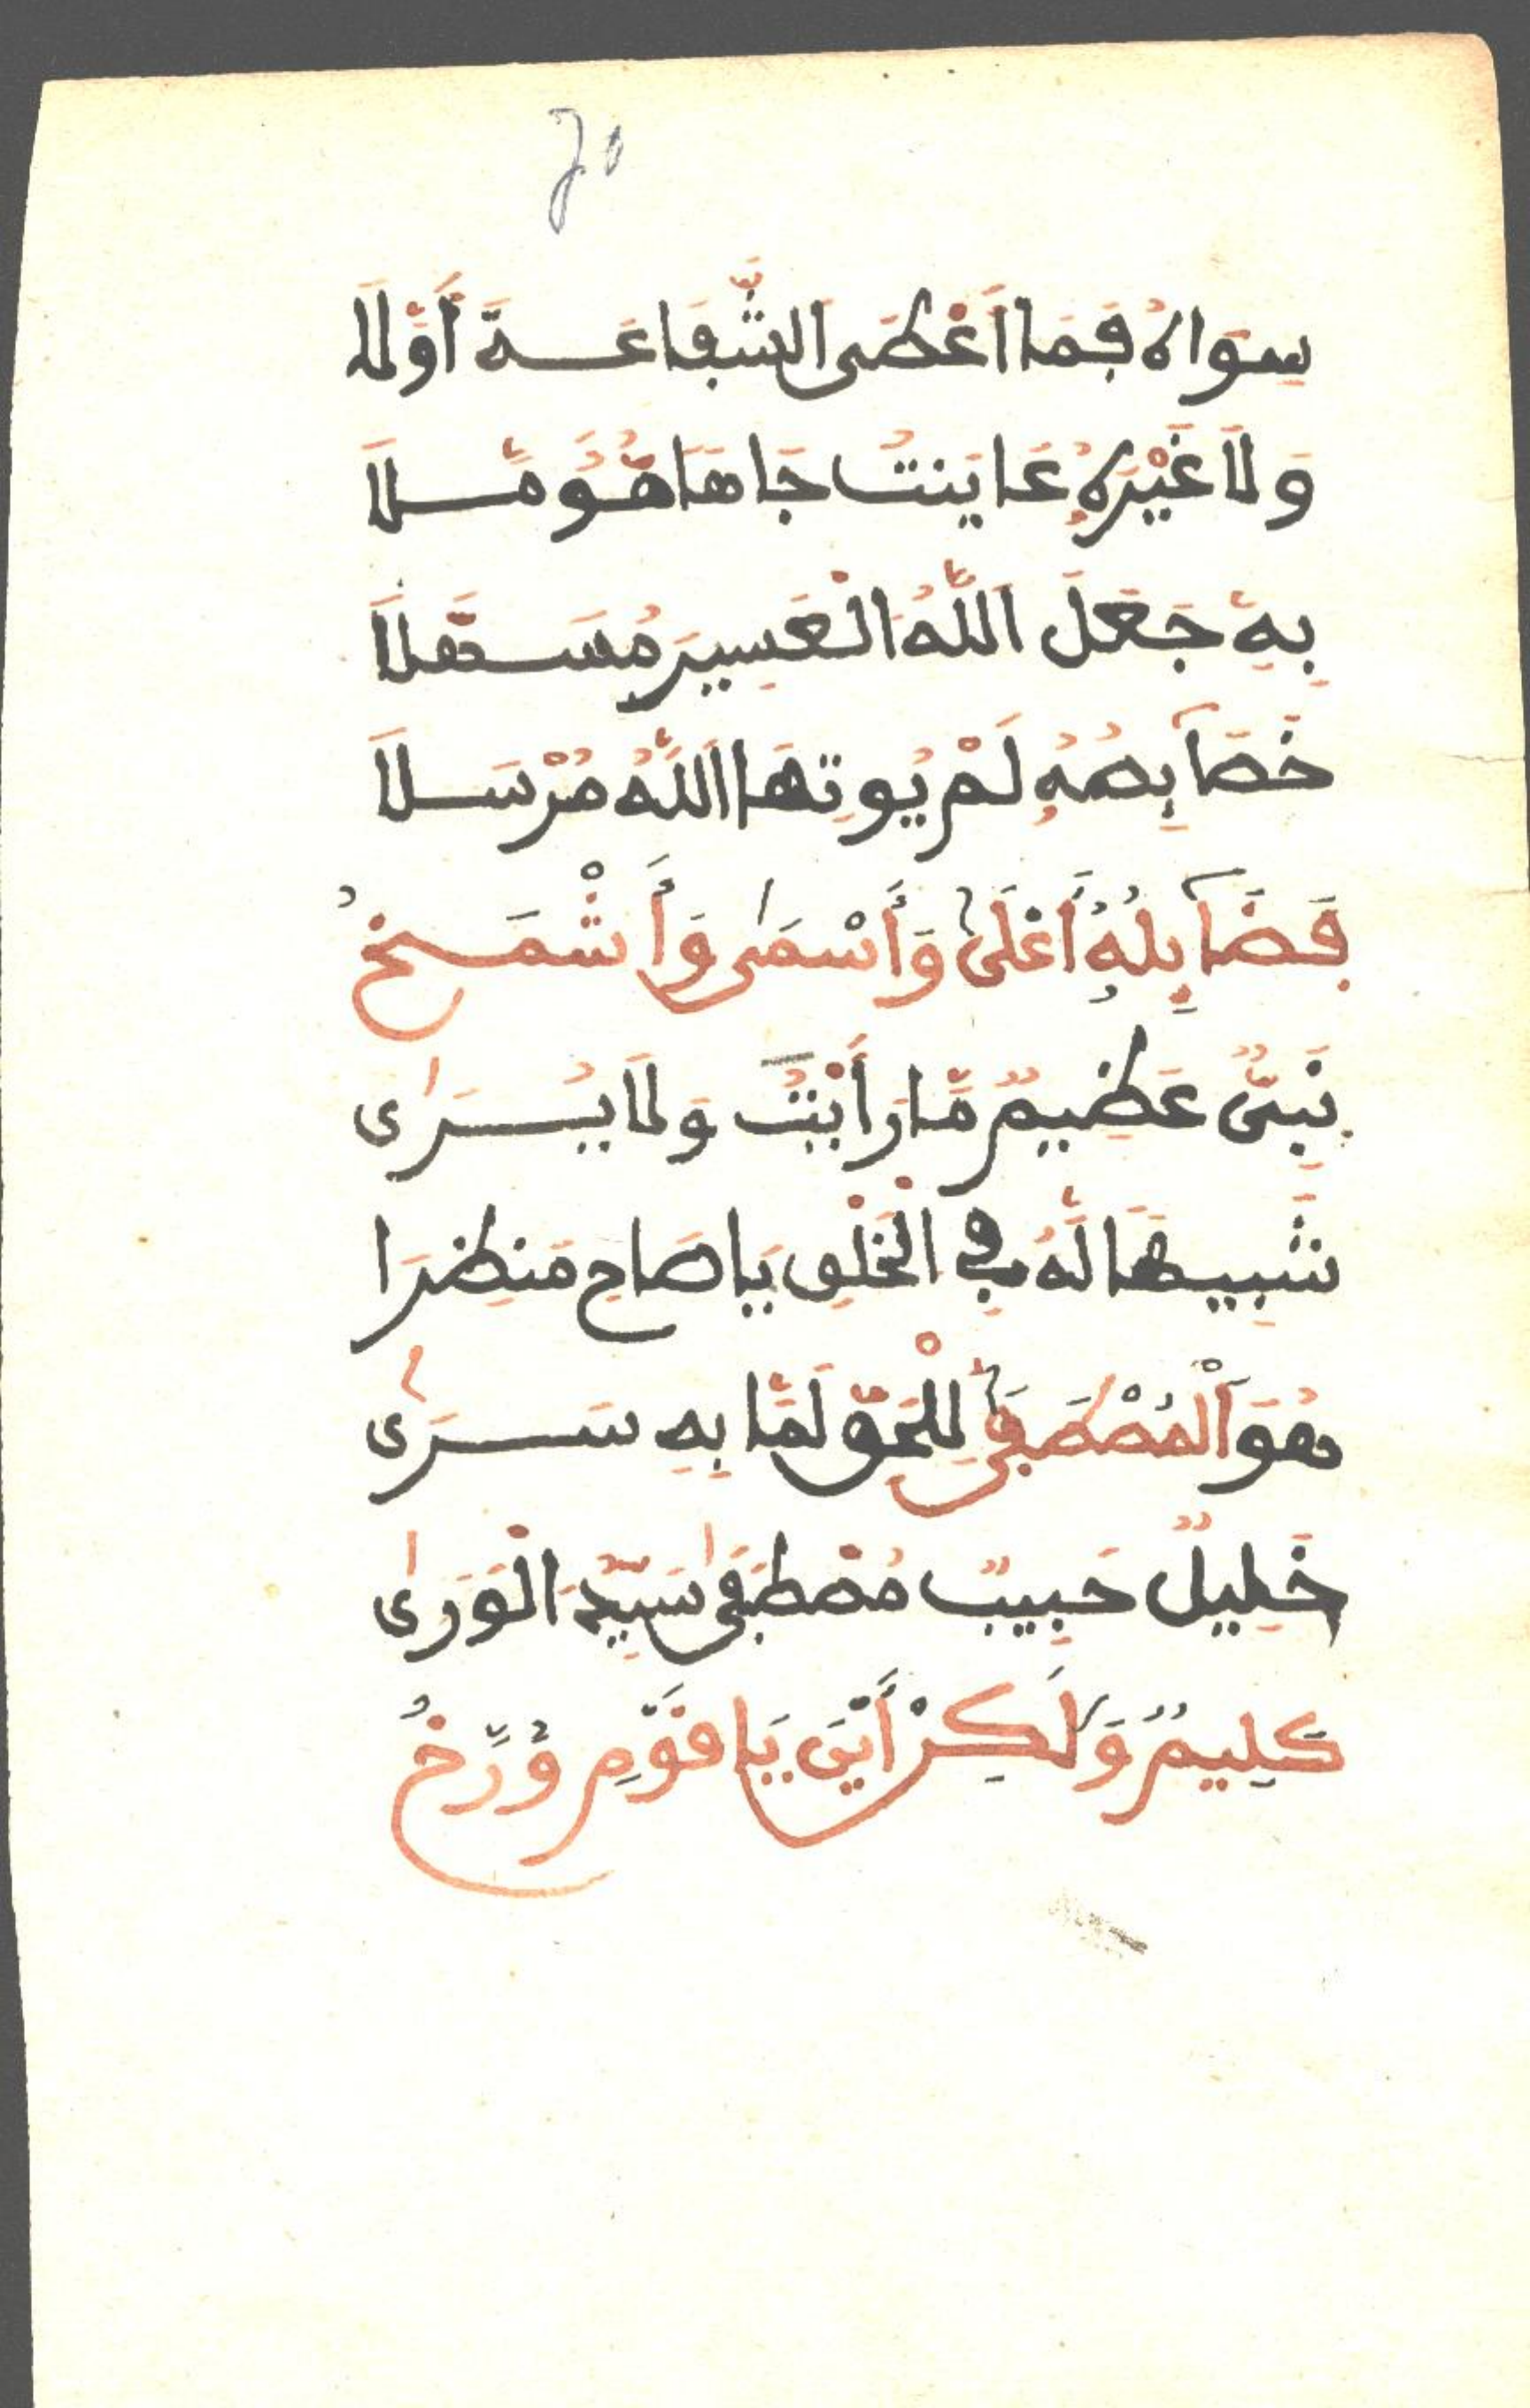 سِوَاهُ فَمَا أَعْطَى الشَّفَاعَةَ أَوَّلَا
وَلَا غَيْرَهُ عَايَنتُ جَاهًا مُؤَمَّلَا
بِهِ جَعَلَ اللَّهُ الْعَسِيرَ مُسَهَّلَا
خَصَآئِصُهُ لَمْ يُوتِهَا اللَّهُ مُرْسَلَا
فَضَآئِلُهُ أَعْلَى وَأَسْمَى وَأَشْمَخُ
نَبِىٌّ عَظِيمٌ مَّا رَأَيْتُ وَلَا يُرَى
شَبِيهًا لَّهُ فِي الْخَلْقِ يَا صَاحِ مَنظِرَا
هُوَ الْمُصْطَفَى لِلْحَقِّ لَمَّا بِهِ سَرَى
خَلِيلٌ حَبِيبٌ مُصْطَفَى سَيِّدُ الْوَرَى
كَلِيمٌ وَلَكِنْ أَيْنَ يَا قَوْمِ وُرِّخُ